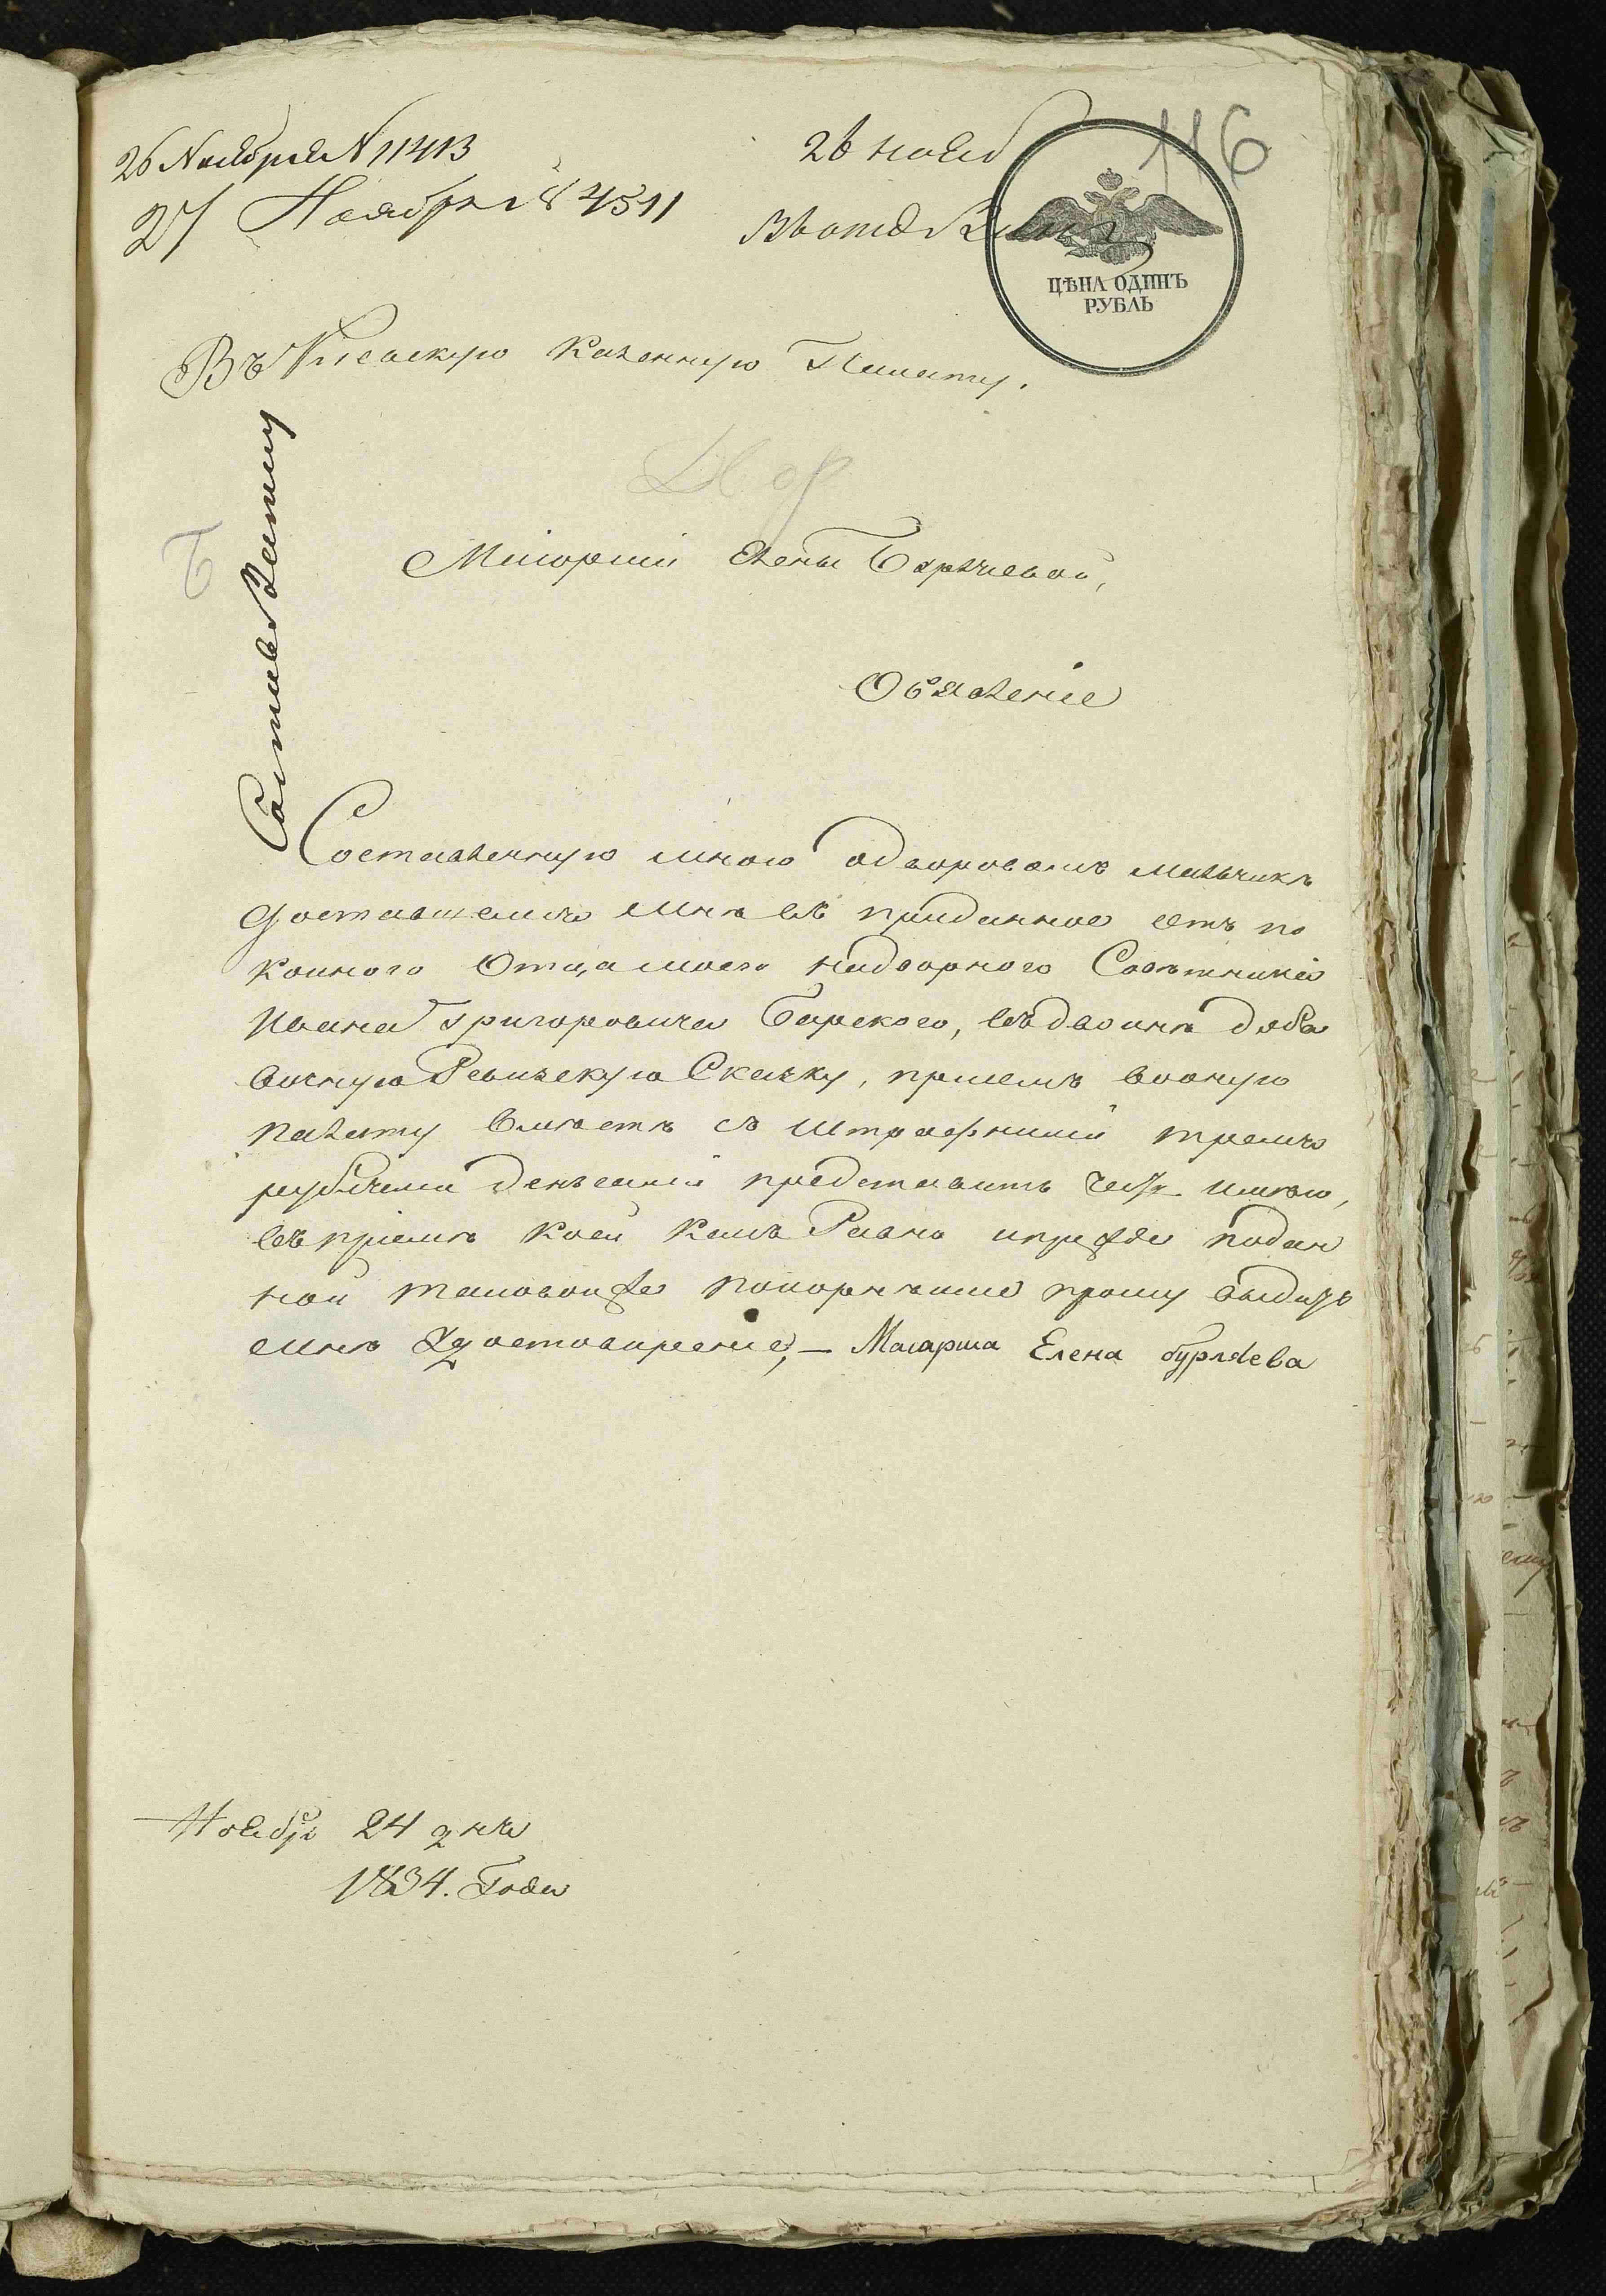 26 Ноября № 11413
27 Ноября № 4511
26 нояб
116
ЦѢНА ОДИНЪ
РУБЛЬ
Въ Кіевскую Казенную Палату.
Маіорши Елены Бурлѣевой,
Объявленіе
Составленную мною одворовомъ мальчикѣ
доставшемся мнѣ въ приданное отъ по
койного Отца моего надворного Совѣтника
Ивана Григоровича Барского, въдвойнѣ доба
вочную Ревизскую Сказку, приемъ вооную
палату вмѣстѣ съ штрафними тремя
рублями денегами представить честь имѣю,
въприемѣ коей какъ Равно ипрежде подан
ной таковойже покорнѣйше прошу выдать
мнѣ Удостовиреніе, — Маіарша Елена бурлѣева
Ноября 24 дня
1834. Года